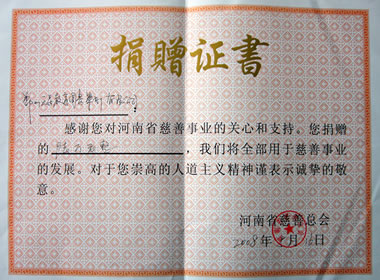 捐赠证书
有限公司:
感谢您对河南省慈善事业的关心和支持。您捐赠
的,我们将全部用于慈善事业
的发展。对于您崇高的人道主义精神谨表示诚挚的敬
意。
河南省慈善总会
2008年 月 日